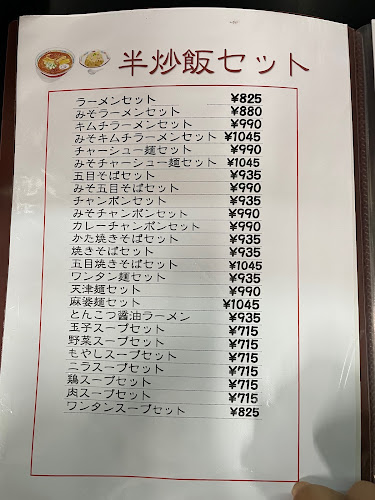 半炒飯セット
ラーメンセット ¥825
みそラーメンセット ¥880
キムチラーメンセット ¥990
みそキムチラーメンセット ¥1045
チャーシュー麺セット ¥990
みそチャーシュー麺セット ¥1045
五目そばセット ¥935
みそ五目そばセット ¥990
チャンポンセット ¥935
みそチャンポンセット ¥990
カレーチャンポンセット ¥990
かた焼きそばセット ¥935
焼きそばセット ¥935
五目焼きそばセット ¥1045
ワンタン麺セット ¥935
天津麺セット ¥990
麻婆麺セット ¥1045
とんこつ醤油ラーメン ¥935
玉子スープセット ¥715
野菜スープセット ¥715
もやしスープセット ¥715
ニラスープセット ¥715
鶏スープセット ¥715
肉スープセット ¥715
ワンタンスープセット ¥825